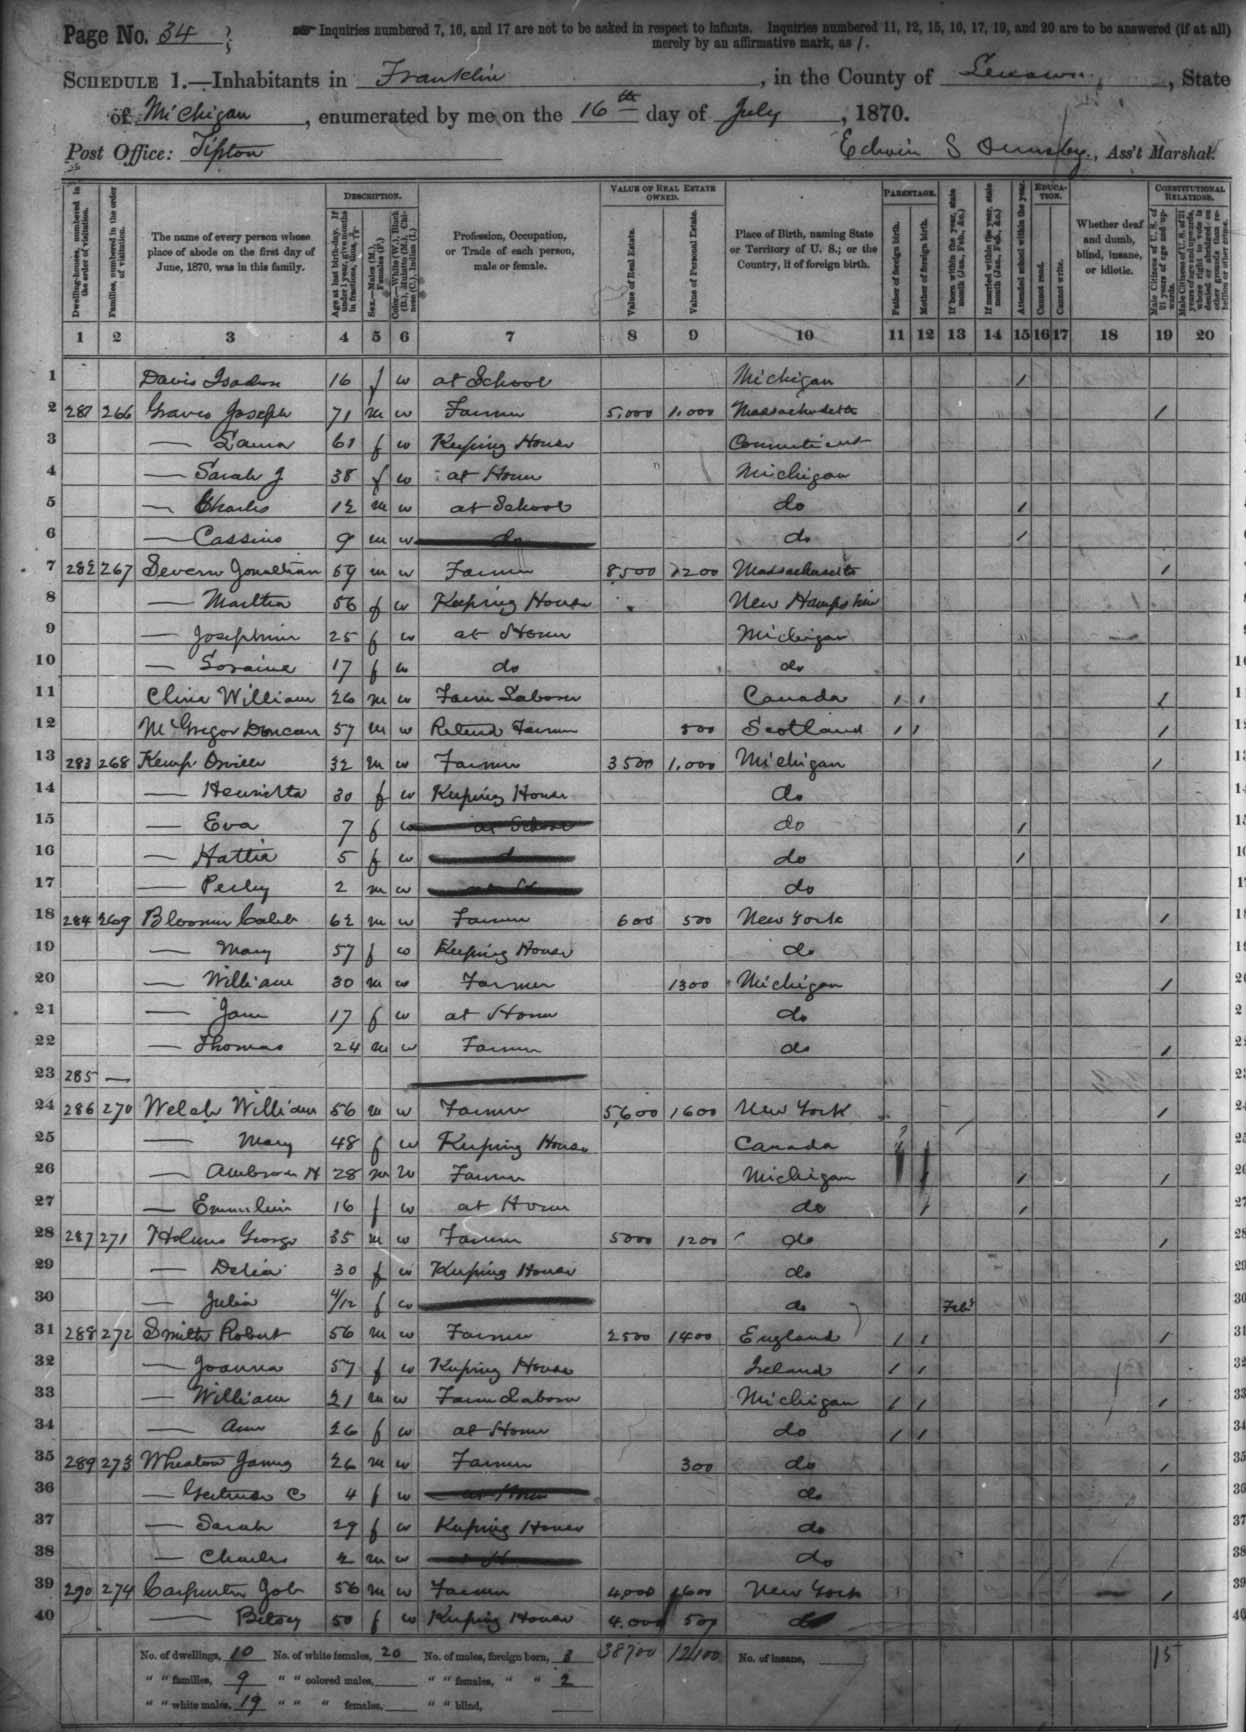 Page No. 34
Inquiries numbered 7, 16, and 17 are not to be asked in respect to infants. Inquiries numbered 11, 12, 15, 16, 17, 19, and 20 are to be answered (if at all) merely by an affirmative mark, as /.
Schedule 1.—Inhabitants in Franklin, in the County of Lenawee, State
of Michigan, enumerated by me on the 16th day of July, 1870.
Post Office: Tipton Edwin S Ormsby, Ass't Marshal.
Dwelling-houses, numbered in the order of visitation.
Families, numbered in the order of visitation.
The name of every person whose place of abode on the first day of June, 1870, was in this family.
Description.
Age at last birth-day. If under 1 year, give months in fractions, thus, 3/12
Sex.—Males (M.), Females (F.)
Color.—White (W.), Black (B.), Mulatto (M.), Chinese (C.), Indian (I.)
Profession, Occupation, or Trade of each person, male or female.
Value of Real Estate Owned.
Value of Real Estate.
Value of Personal Estate.
Place of Birth, naming State or Territory of U. S.; or the Country, if of foreign birth.
Parentage.
Father of foreign birth.
Mother of foreign birth.
If born within the year, state month (Jan., Feb., &c.)
If married within the year, state month (Jan., Feb., &c.)
Education.
Attended school within the year.
Cannot read.
Cannot write.
Whether deaf and dumb, blind, insane, or idiotic.
Constitutional Relations.
Male Citizens of U. S. of 21 years of age and upwards.
Male Citizens of U. S. of 21 years of age and upwards, whose right to vote is denied or abridged on other grounds than rebellion or other crime.
1 2 3 4 5 6 7 8 9 10 11 12 13 14 15 16 17 18 19 20
1 Davis 16 f w at School Michigan / 1
2 281 266 Graves Joseph 71 m w Farmer 5,000 1,000 Massachusetts / 2
3 — Laura 61 f w Keeping House Connecticut 3
4 — Sarah J 38 f w at Home Michigan 4
5 — Charles 12 m w at School do / 5
6 — Cassius 9 m w do do / 6
7 282 267 Severn Jonathan 59 m w Farmer 8500 1200 Massachusetts / 7
8 — Martha 56 f w Keeping House New Hampshire 8
9 — Josephine 25 f w at Home Michigan 9
10 — Loraine 17 f w do do 10
11 Cline William 26 m w Farm Laborer Canada / / / 11
12 McGregor Duncan 57 m w Retired Farmer 500 Scotland / / / 12
13 283 268 Kemp Orville 32 m w Farmer 3500 1,000 Michigan / 13
14 — Henrietta 30 f w Keeping House do 14
15 — Eva 7 f w at School do / 15
16 — Hattie 5 f w do / 16
17 — Perley 2 m w do 17
18 284 269 Bloomer Caleb 62 m w Farmer 600 500 New York / 18
19 — Mary 57 f w Keeping House do 19
20 — William 30 m w Farmer 1300 Michigan / 20
21 — Jane 17 f w at Home do 21
22 — Thomas 24 m w Farmer do / 22
23 285 — — 23
24 286 270 Welch William 56 m w Farmer 5,600 1600 New York / 24
25 — Mary 48 f w Keeping House Canada 25
26 — Ambrose H 28 m w Farmer Michigan / / / 26
27 — Emmeline 16 f w at Home do / / 27
28 287 271 Holmes George 35 m w Farmer 5000 1200 do / 28
29 — Delia 30 f w Keeping House do 29
30 — Julia 4/12 f w do Feb 30
31 288 272 Smith Robert 56 m w Farmer 2500 1400 England / / / 31
32 — Joanna 57 f w Keeping House Ireland / / 32
33 — William 21 m w Farm Laborer Michigan / / / 33
34 — Ann 26 f w at Home do / / 34
35 289 273 Wheaton James 26 m w Farmer 300 do / 35
36 — Gertrude C 4 f w at Home do 36
37 — Sarah 29 f w Keeping House do 37
38 — Charles 2 m w do 38
39 290 274 Carpenter Job 56 m w Farmer 4,000 1600 New York / 39
40 — Betsey 50 f w Keeping House 4.000 500 do 40
No. of dwellings, 10 No. of white females, 20 No. of males, foreign born, 3 38700 12,100 No. of insane, 15
" " families, 9 " " colored males, " " females, " " 2
" " white males, 19 " " " females, " " blind,